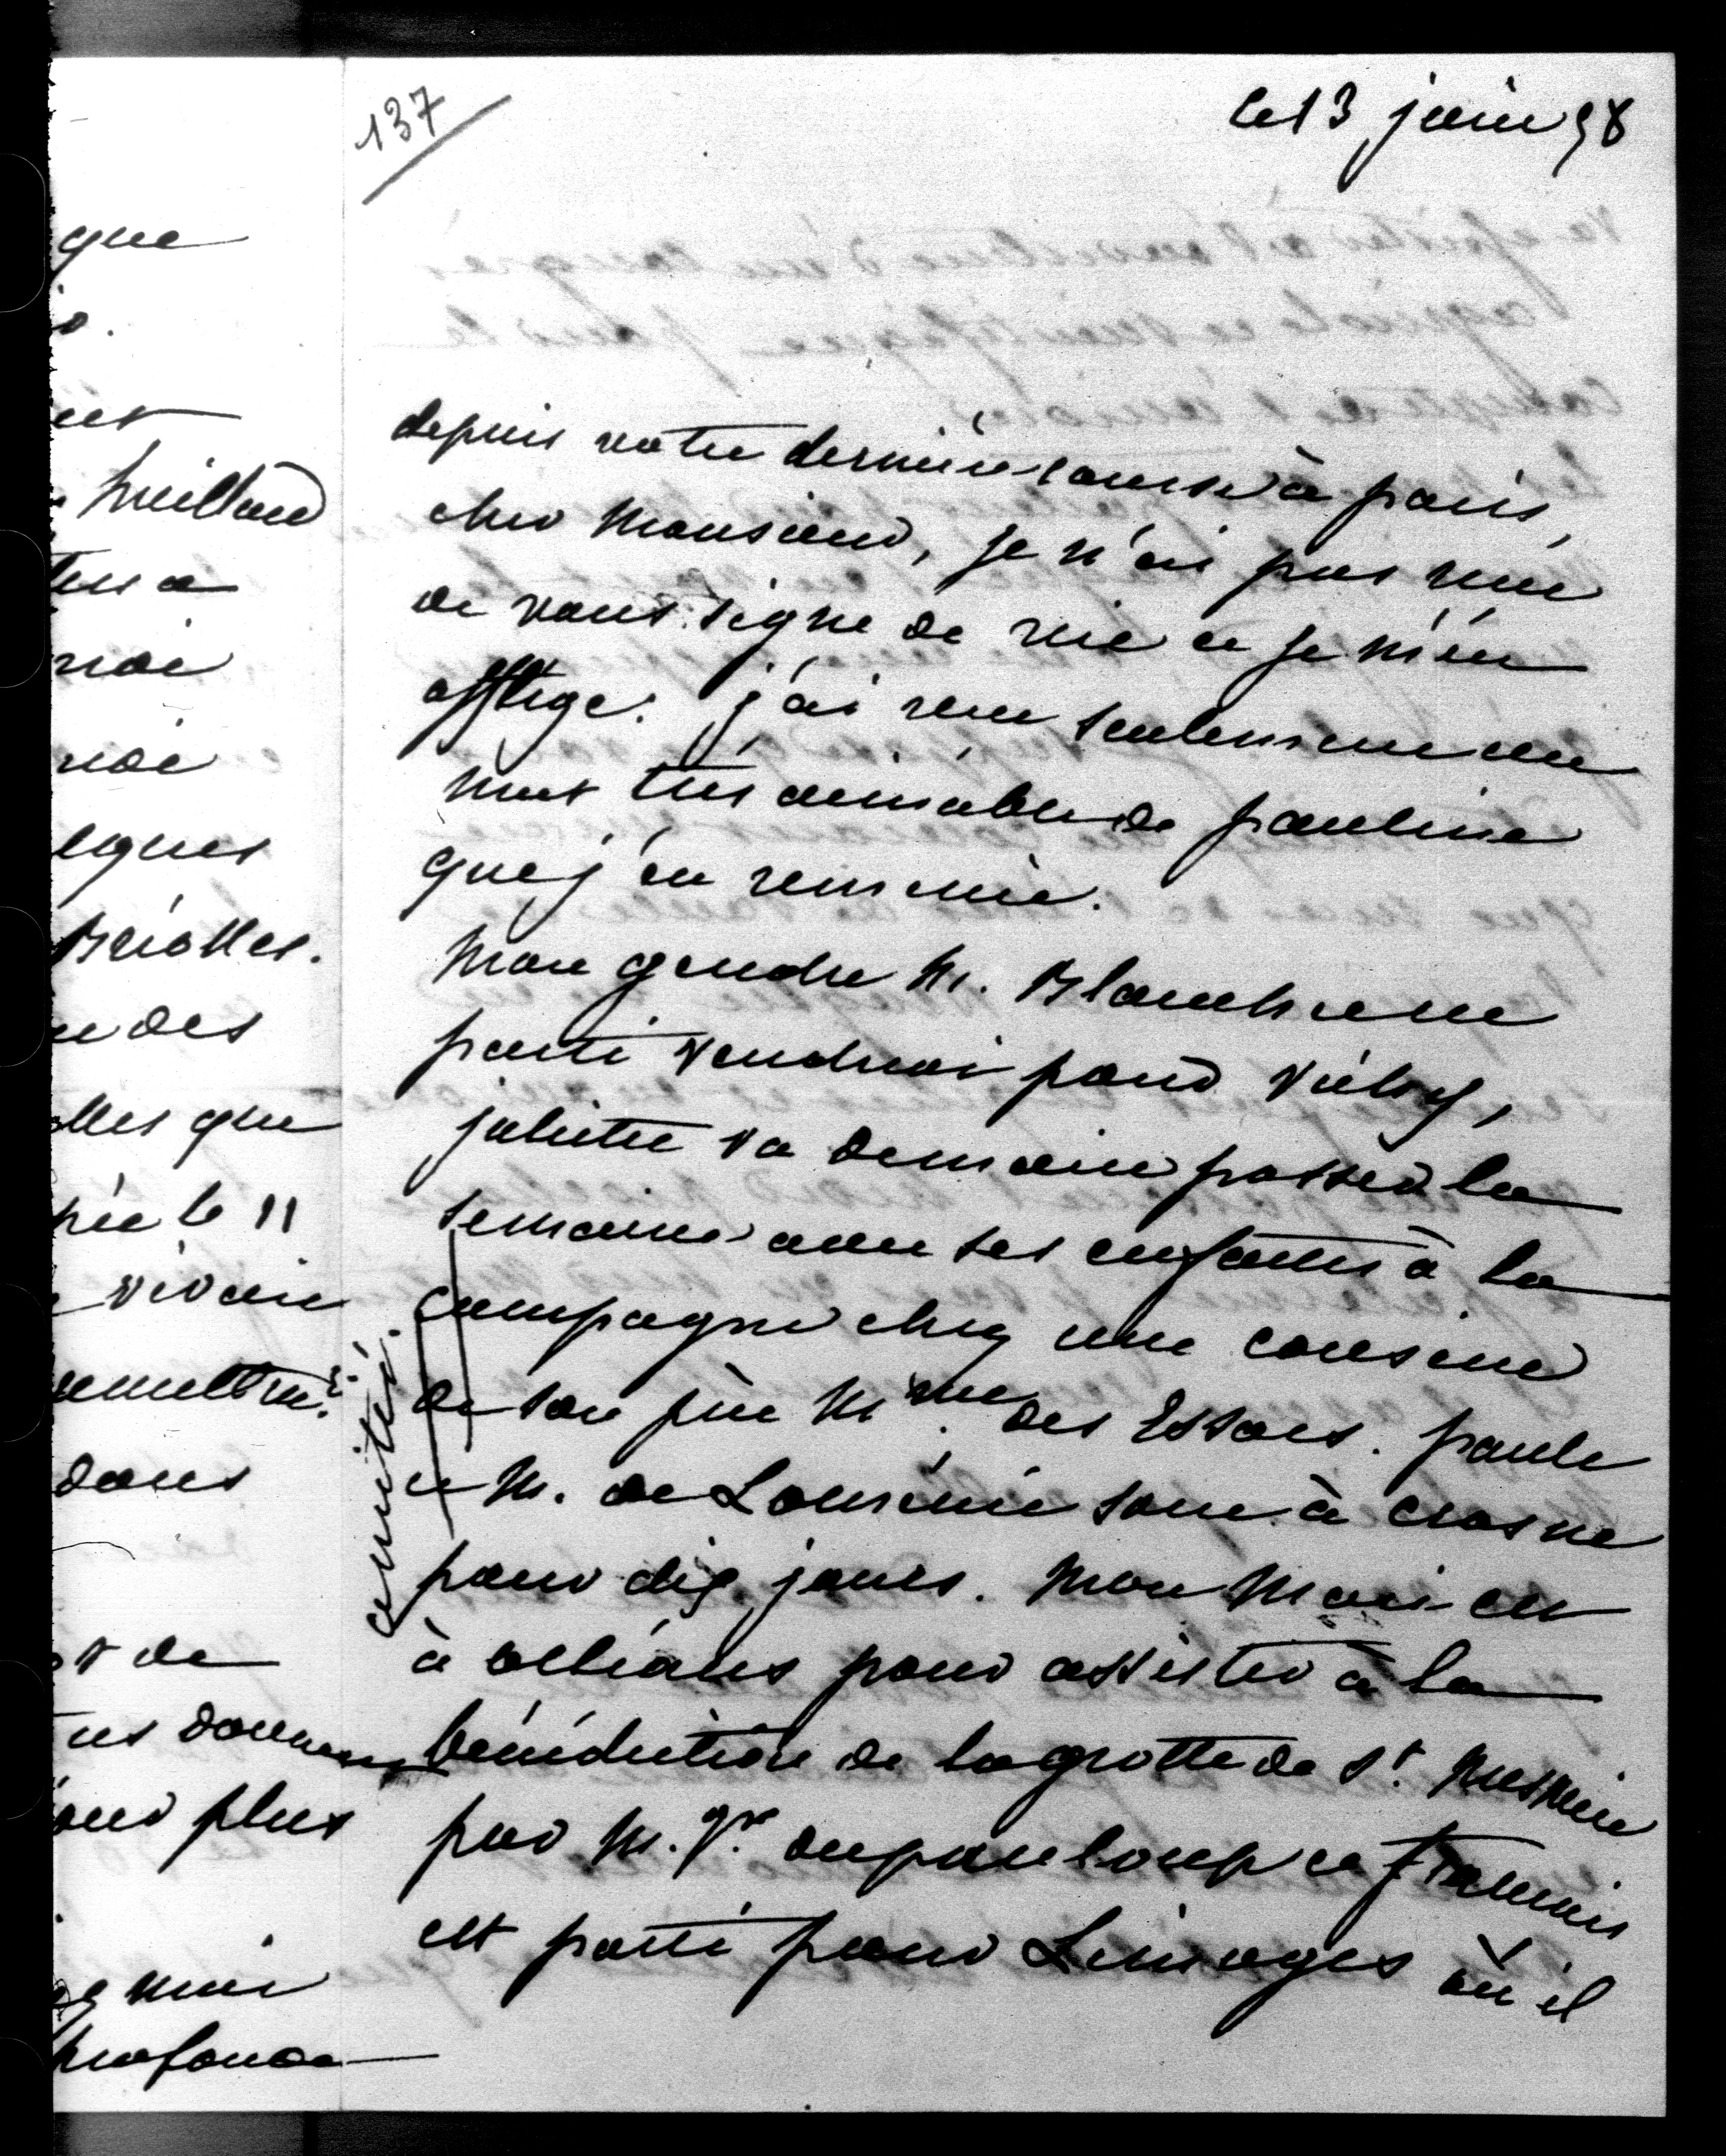 137
le 13 juin 58
depuis votre dernière course à paris,
cher Monsieur, je n'ai pas reçu
de vous signe de vie et je m'en
afflige. j'ai reçu seulement un
mot très aimable de pauline
que j'en remercie.
Mon gendre M. Blanche est
parti vendredi pour Vichy,
juliette va demain passer la
semaine avec ses enfants à la
campagne chez une cousine
de son père Mme. des Essars. paule
et M. de Loménie sont à crosne
pour dix jours. Mon Mari est
à orléans pour assister à la
bénédiction de la grotte de St. Mesmin
par M.gr. dupanloup et francis
est parti pour Limoges où il
amitié.
que
o.
Treilland
ten a
moi
moi
Briolles.
des
lles que
le 11
vivoir
dans
de
donner
plus
mai
profonde